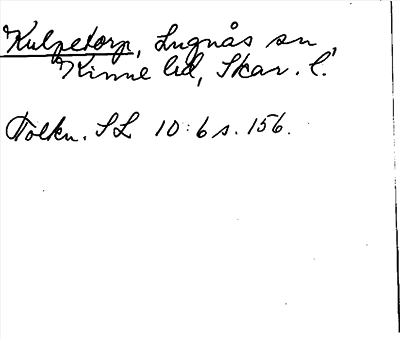 Kulpetorp, Lugnås sn
Kinne hd, Skar. l.
Tolkn. SL 10:6 s. 156.